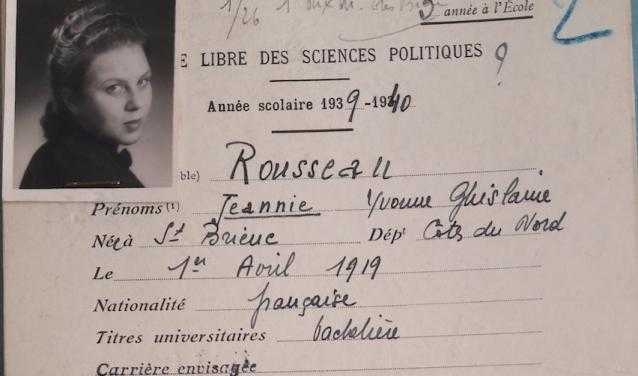 3 année à l'École
E LIBRE DES SCIENCES POLITIQUES
Année scolaire 1939-1940
ble) Rousseau
Prénoms (1) Jeannie Yvonne Ghislaine
Née à St Brieuc Dépt Côtes du Nord
Le 1er Avril 1919
Nationalité française
Titres universitaires bachelière
Carrière envisagée